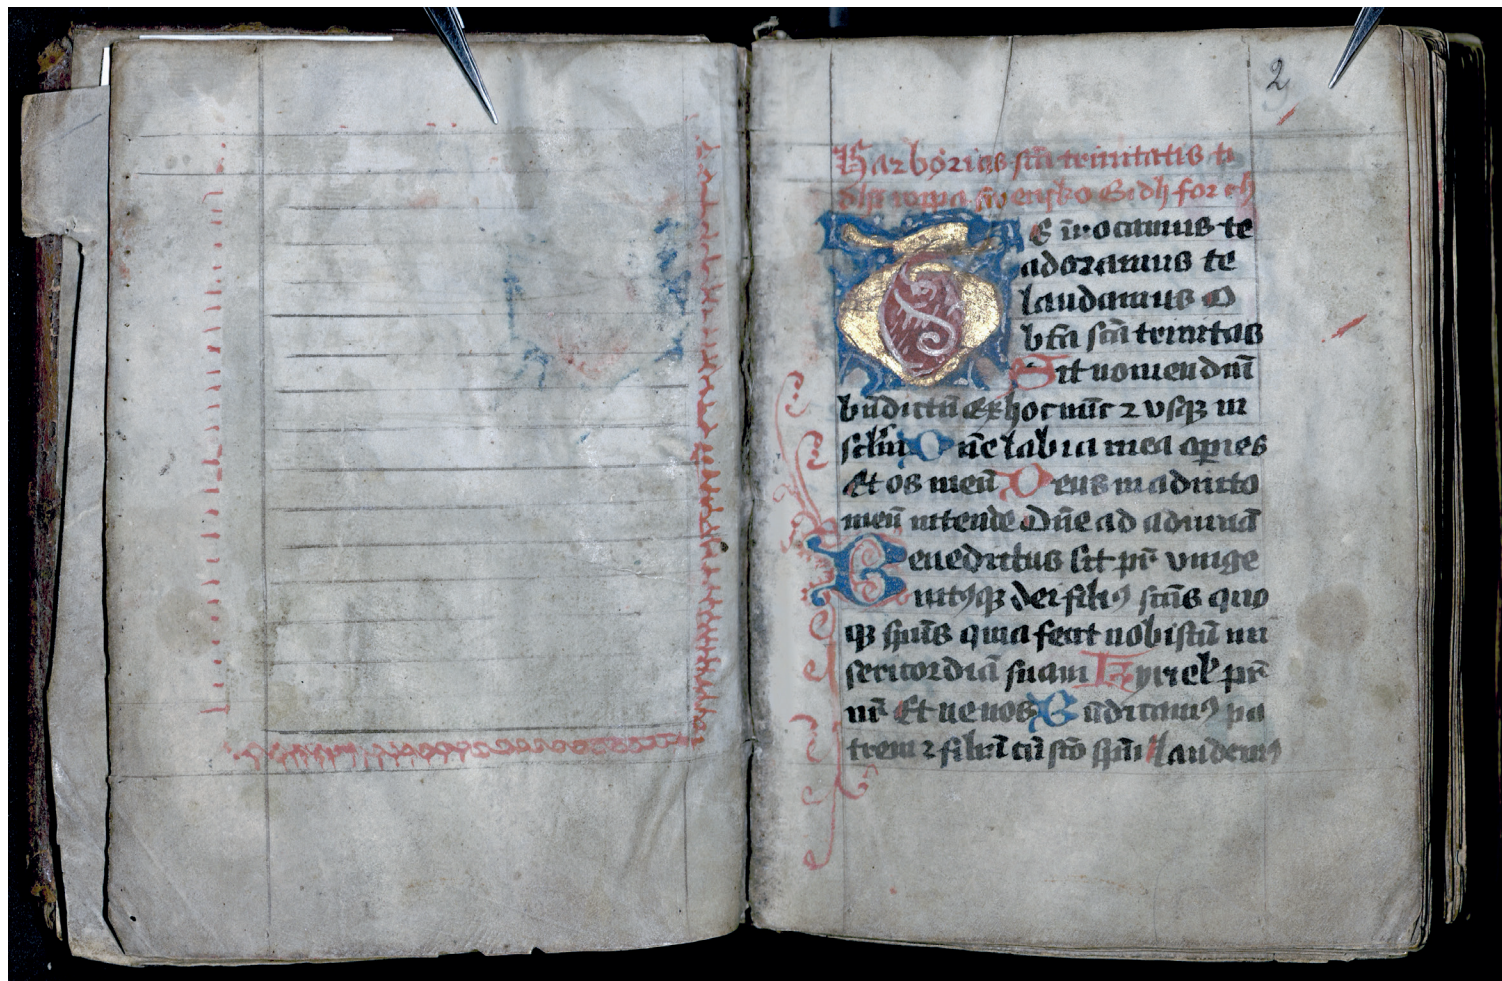 2
Har börias sc̄e trinitatis ti
dhe oppa swensko Gudh for th
TE īuocamus te
adoramus te
laudamus O
bt̄a sc̄a trinitas
Sit nomen dn̄i
bn̄dictū Ex hoc nūc ⁊ vsqꝫ in
sc̄lm̄ Dn̄e labia mea apies
Et os meū Deus in adiuto
meū intende Dn̄e ad adiuuā
Benedictus sit pr̄ vnige
nitꝰqꝫ dei filiꝰ sc̄us quo
qꝫ sp̄us quia fecit nobiscū mi
sericordiā suam Kyriel' pr̄
nr̄ Et ne nos Bn̄dicamꝰ pa
trem ⁊ filiū cū sc̄o sp̄u laudemꝰ